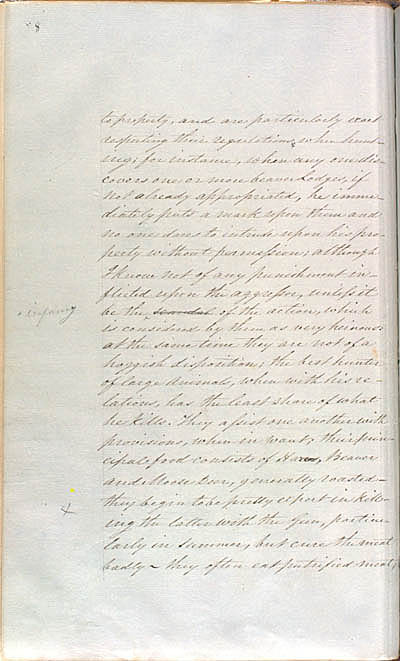 8
to property, and are particularly exact
respecting their regulations, when hunt-
ing; for instance, when any one dis-
covers one or more beaver Lodges, if
not already appropriated, he imme-
diately puts a mark upon them and
no one dares to intrude upon his pro-
perty without permission; although
I know not of any punishment in-
flicted upon the aggressor, unless it
be the scandal of the action, which
is considered by them as very heinous:
at the same time they are not of a
hoggish disposition; the best hunter
of large animals, when with his re-
lations, has the least share of what
he kills. They assist one another with
provisions, when in want; their prin-
cipal food consists of Hares, Beaver
and Moose Deer, generally roasted —
they begin to be pretty expert in kill-
ing the latter with the Gun, particu-
larly in summer, but cure the meat
badly — they often eat putrified meat,
infamy